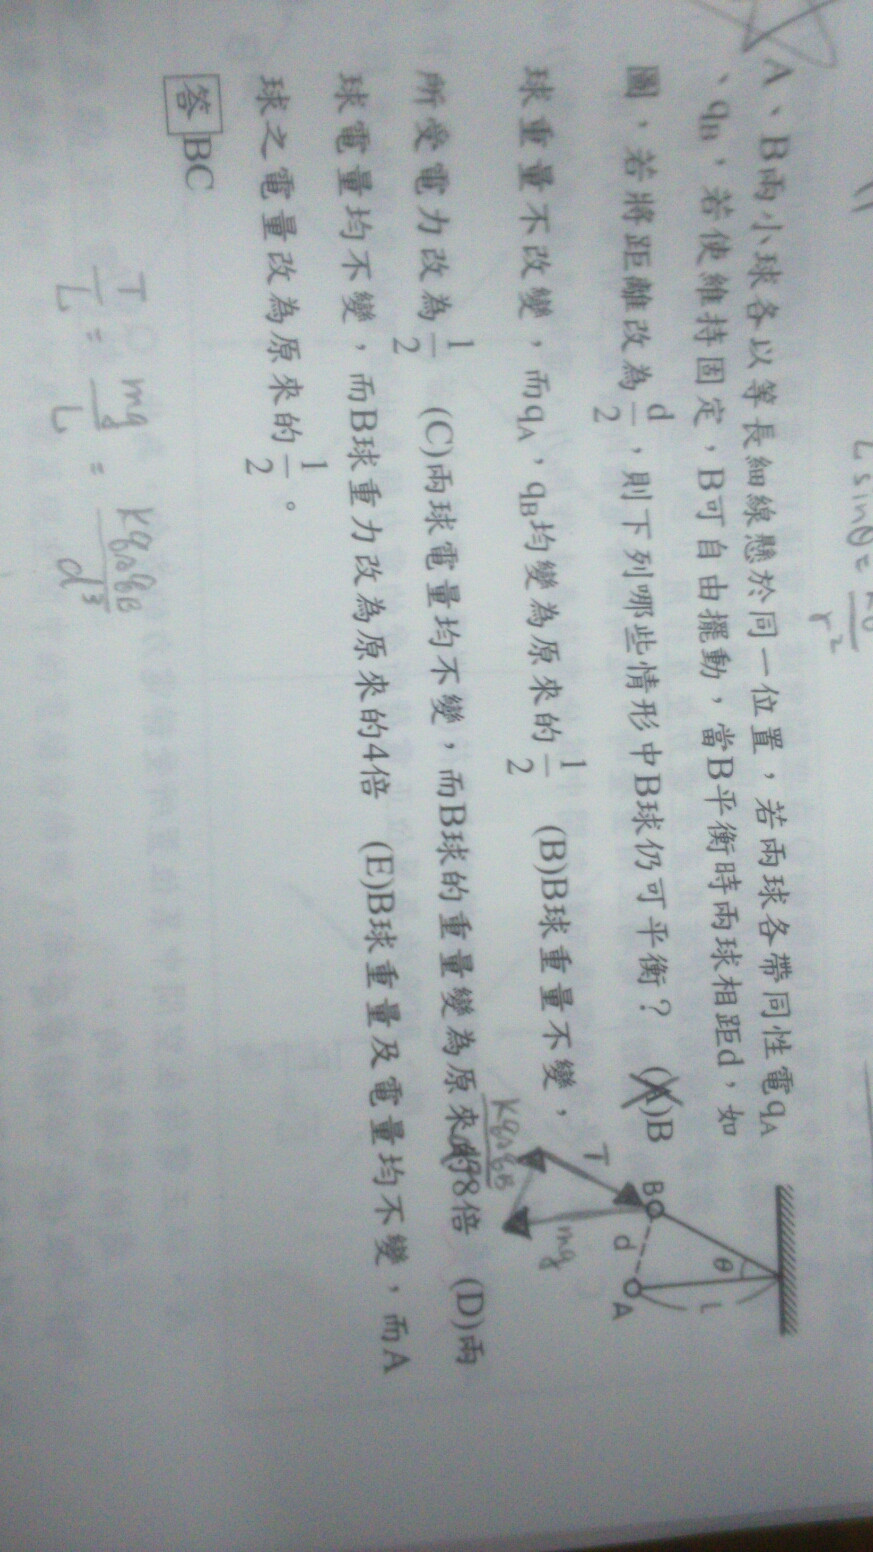 L sinθ =
r²
A、B兩小球各以等長細線懸於同一位置，若兩球各帶同性電qA
、qB，若使維持固定，B可自由擺動，當B平衡時兩球相距d，如
圖，若將距離改為d/2，則下列哪些情形中B球仍可平衡？ (A)B
球重量不改變，而qA，qB均變為原來的1/2 (B)B球重量不變，
所受電力改為1/2 (C)兩球電量均不變，而B球的重量變為原來的8倍 (D)兩
球電量均不變，而B球重力改為原來的4倍 (E)B球重量及電量均不變，而A
球之電量改為原來的1/2。
θ
L
B
d
A
T
mg
KqAqB
答 BC
T/L = mg/L = KqAqB/d³